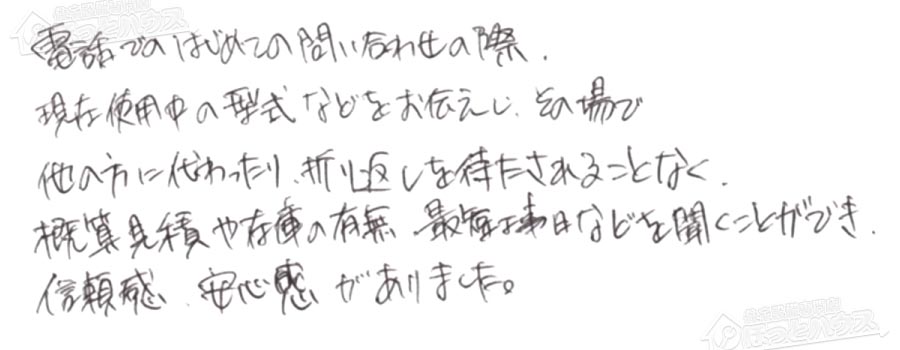 電話でのはじめての問い合わせの際、
現在使用中の型式などをお伝えし、その場で
他の方に代わったり、折り返しを待たされることなく、
概算見積や在庫の有無、最短工事日などを聞くことができ、
信頼感、安心感がありました。
ほっとハウス
ほっとハウス